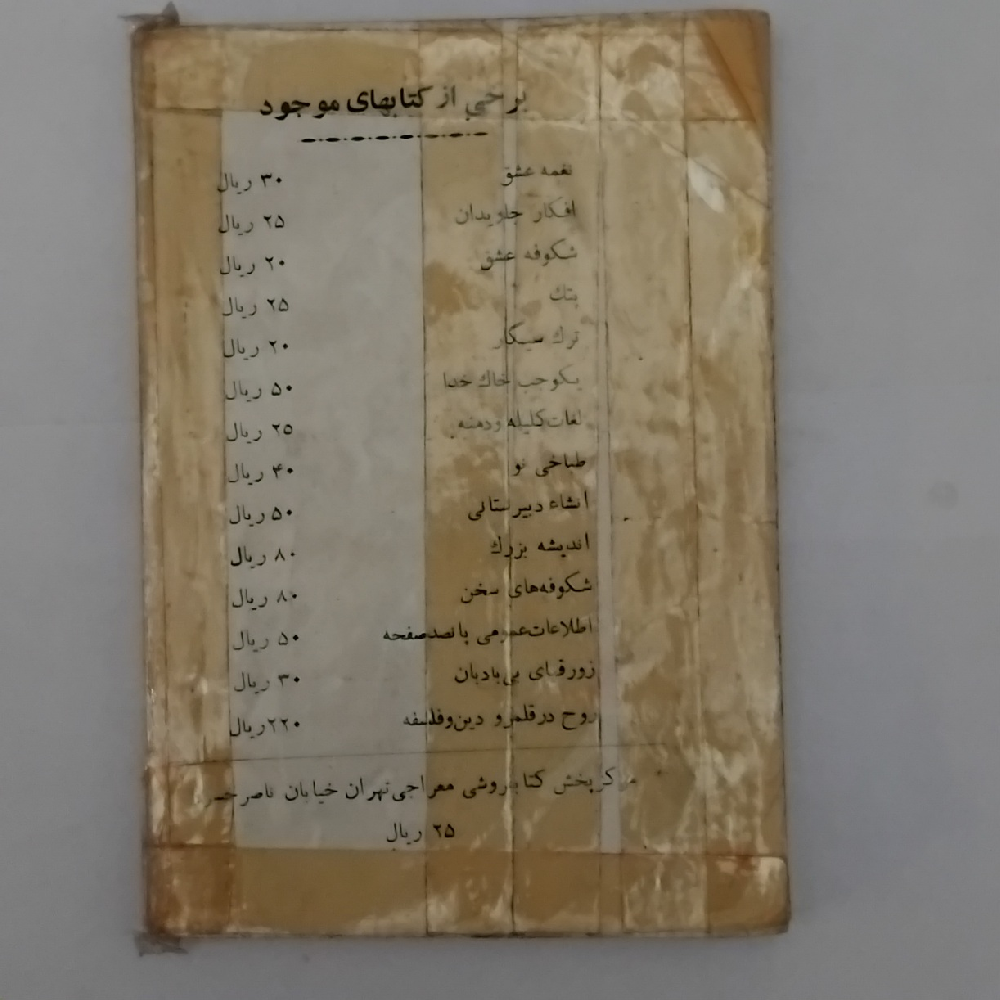 برخی از کتابهای موجود
نغمه عشق ۳۰ ریال
افکار جاویدان ۲۵ ریال
شکوفه عشق ۲۰ ریال
پتك ۲۵ ریال
ترك سیگار ۲۰ ریال
یکوجب خاك خدا ۵۰ ریال
لغات کلیله ودمنه ۲۵ ریال
طباخی نو ۴۰ ریال
انشاء دبیرستانی ۵۰ ریال
اندیشه بزرك ۸۰ ریال
شکوفه‌های سخن ۸۰ ریال
اطلاعات عمومی پانصدصفحه ۵۰ ریال
زورقهای بی‌بادبان ۳۰ ریال
روح درقلمرو دین‌وفلسفه ۲۲۰ ریال
مرکز پخش کتابفروشی معراجی تهران خیابان ناصر خسرو
۲۵ ریال